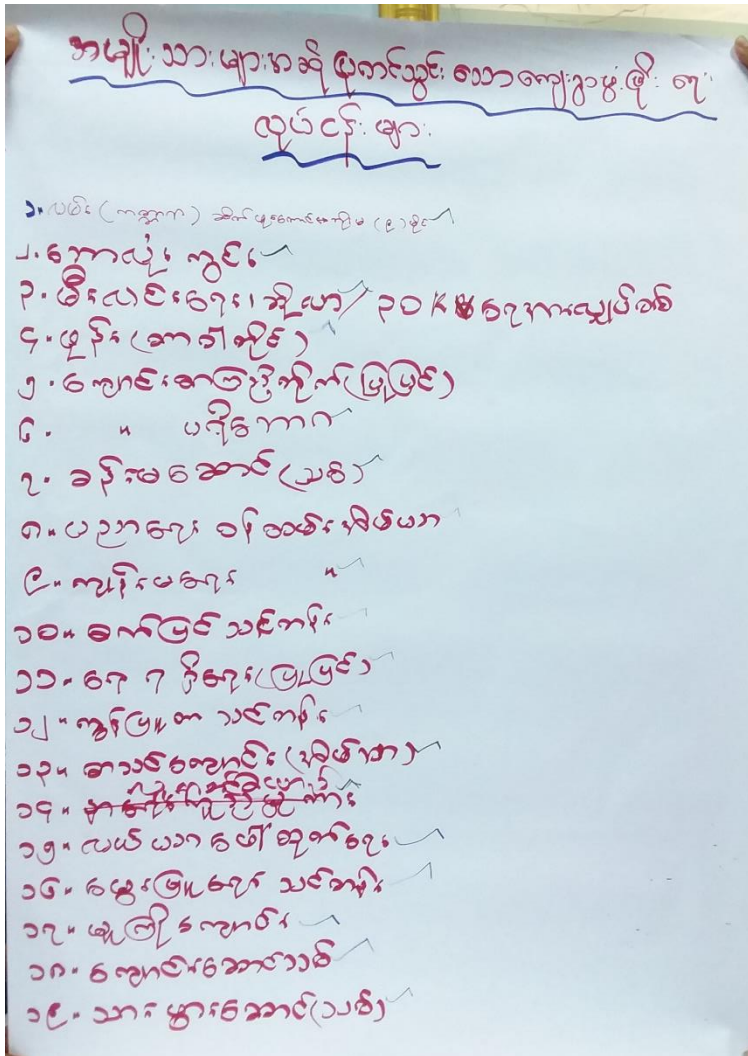 အမျိုးသားများအဆိုပြုတင်သွင်းသောကျေးရွာဖွံ့ဖြိုးရေး
လုပ်ငန်းများ
၁။ လမ်း (ကတ္တရာ)
၂။ ဘောလုံးကွင်း
၃။ မီးလင်းရေး၊ ဆိုလာ/ ၃၀ K
၄။ ဖုန်း (တာဝါတိုင်)
၅။ ကျောင်းစာကြည့်တိုက် (ပြုပြင်)
၆။ " ပရိဘောဂ
၇။ ခန်းမဆောင် (သစ်)
၈။ ပညာရေး ဝန်ထမ်းအိမ်ယာ
၉။ ကျန်းမာရေး "
၁၀။ စက်ပြင် သင်တန်း
၁၁။ ရေ ရရှိရေး (ပြုပြင်)
၁၂။ ကွန်ပြူတာ သင်တန်း
၁၃။ စာသင်ကျောင်း (အိမ်သာ)
၁၄။
၁၅။ လယ်ယာဖော်ထုတ်ရေး
၁၆။ မွေးမြူရေး သင်တန်း
၁၇။ မူကြိုကျောင်း
၁၈။ ကျောင်းဆောင်သစ်
၁၉။ သားဖွားဆောင် (သစ်)